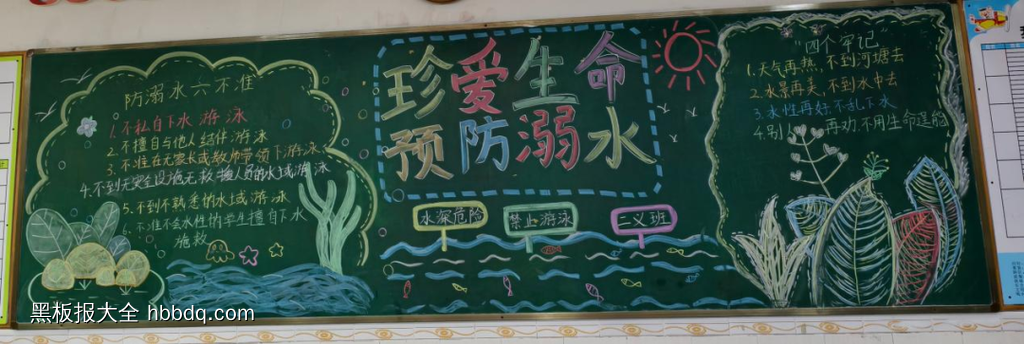 防溺水六不准
1.不私自下水游泳
2.不擅自与他人结伴游泳
3.不准在无家长或教师带领下游泳
4.不到无安全设施无救援人员的水域游泳
5.不到不熟悉的水域游泳
6.不准不会水性的学生擅自下水
施救
珍爱生命
预防溺水
水深危险
禁止游泳
二义班
"四个牢记"
1.天气再热,不到河塘去
2.水景再美,不到水中去
3.水性再好不乱下水
4.别人再劝,不用生命逞能
黑板报大全 hbbdq.com